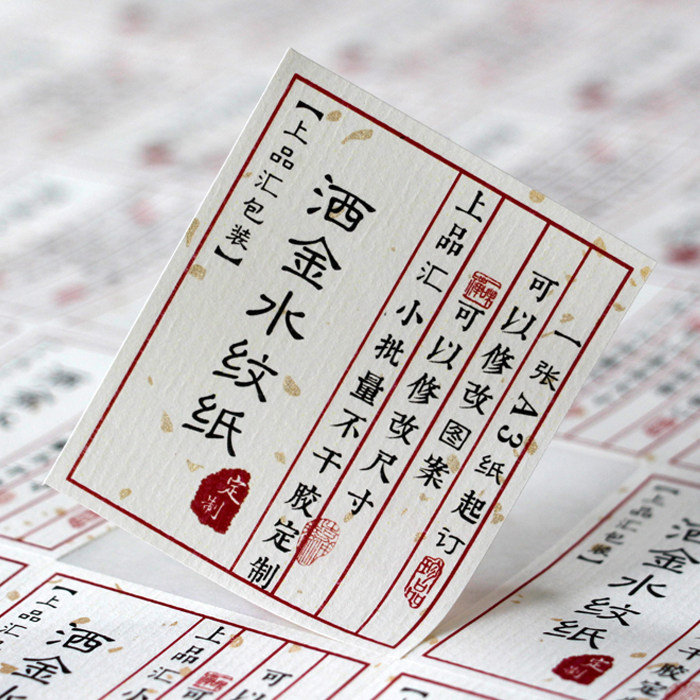 【上品汇包装】
洒金水纹纸
定制
上品汇小批量不干胶定制
可以修改尺寸
可以修改图案
一张A3纸起订
珍品
【上品汇包装】
洒金水纹纸
定制
【上品汇
洒金
上品汇
可
可以